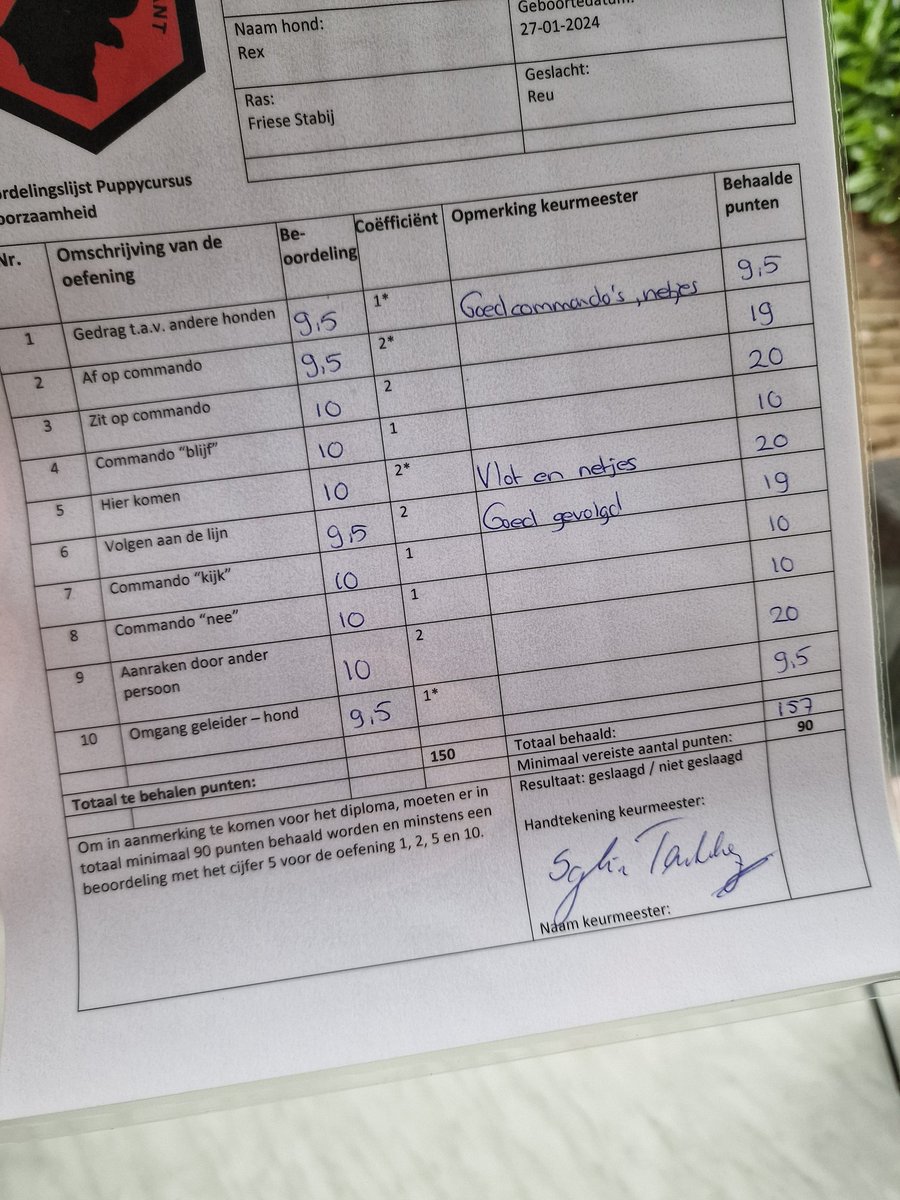 ANT
Naam hond:
Rex
Geboortedatum:
27-01-2024
Ras:
Friese Stabij
Geslacht:
Reu
Puppycursus
Nr. Omschrijving van de oefening Be-oordeling Coëfficiënt Opmerking keurmeester Behaalde punten
1 Gedrag t.a.v. andere honden 9,5 1* Goed commando's, netjes 9,5
2 Af op commando 9,5 2* 19
3 Zit op commando 10 2 20
4 Commando “blijf” 10 1 10
5 Hier komen 10 2* Vlot en netjes 20
6 Volgen aan de lijn 9,5 2 Goed gevolgd 19
7 Commando “kijk” 10 1 10
8 Commando “nee” 10 1 10
9 Aanraken door ander persoon 10 2 20
10 Omgang geleider – hond 9,5 1* 9,5
Totaal te behalen punten: 150 Totaal behaald: 157
Minimaal vereiste aantal punten: 90
Om in aanmerking te komen voor het diploma, moeten er in
totaal minimaal 90 punten behaald worden en minstens een
beoordeling met het cijfer 5 voor de oefening 1, 2, 5 en 10.
Resultaat: geslaagd / niet geslaagd
Handtekening keurmeester:
Naam keurmeester: